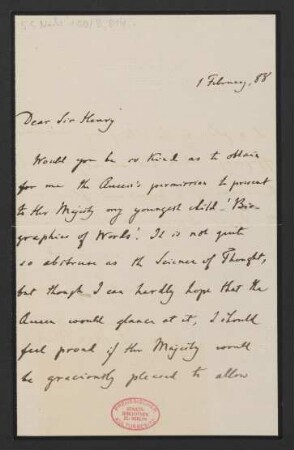 1 February, 88
Dear Sir Henry
Would you be so kind as to obtain
for me the Queen's permission to present
to Her Majesty my youngest child 'Bio-
graphies of Words'. It is not quite
so abstruse as the Science of Thought,
but though I can hardly hope that the
Queen would glance at it, I should
feel proud if Her Majesty would
be graciously pleased to allow